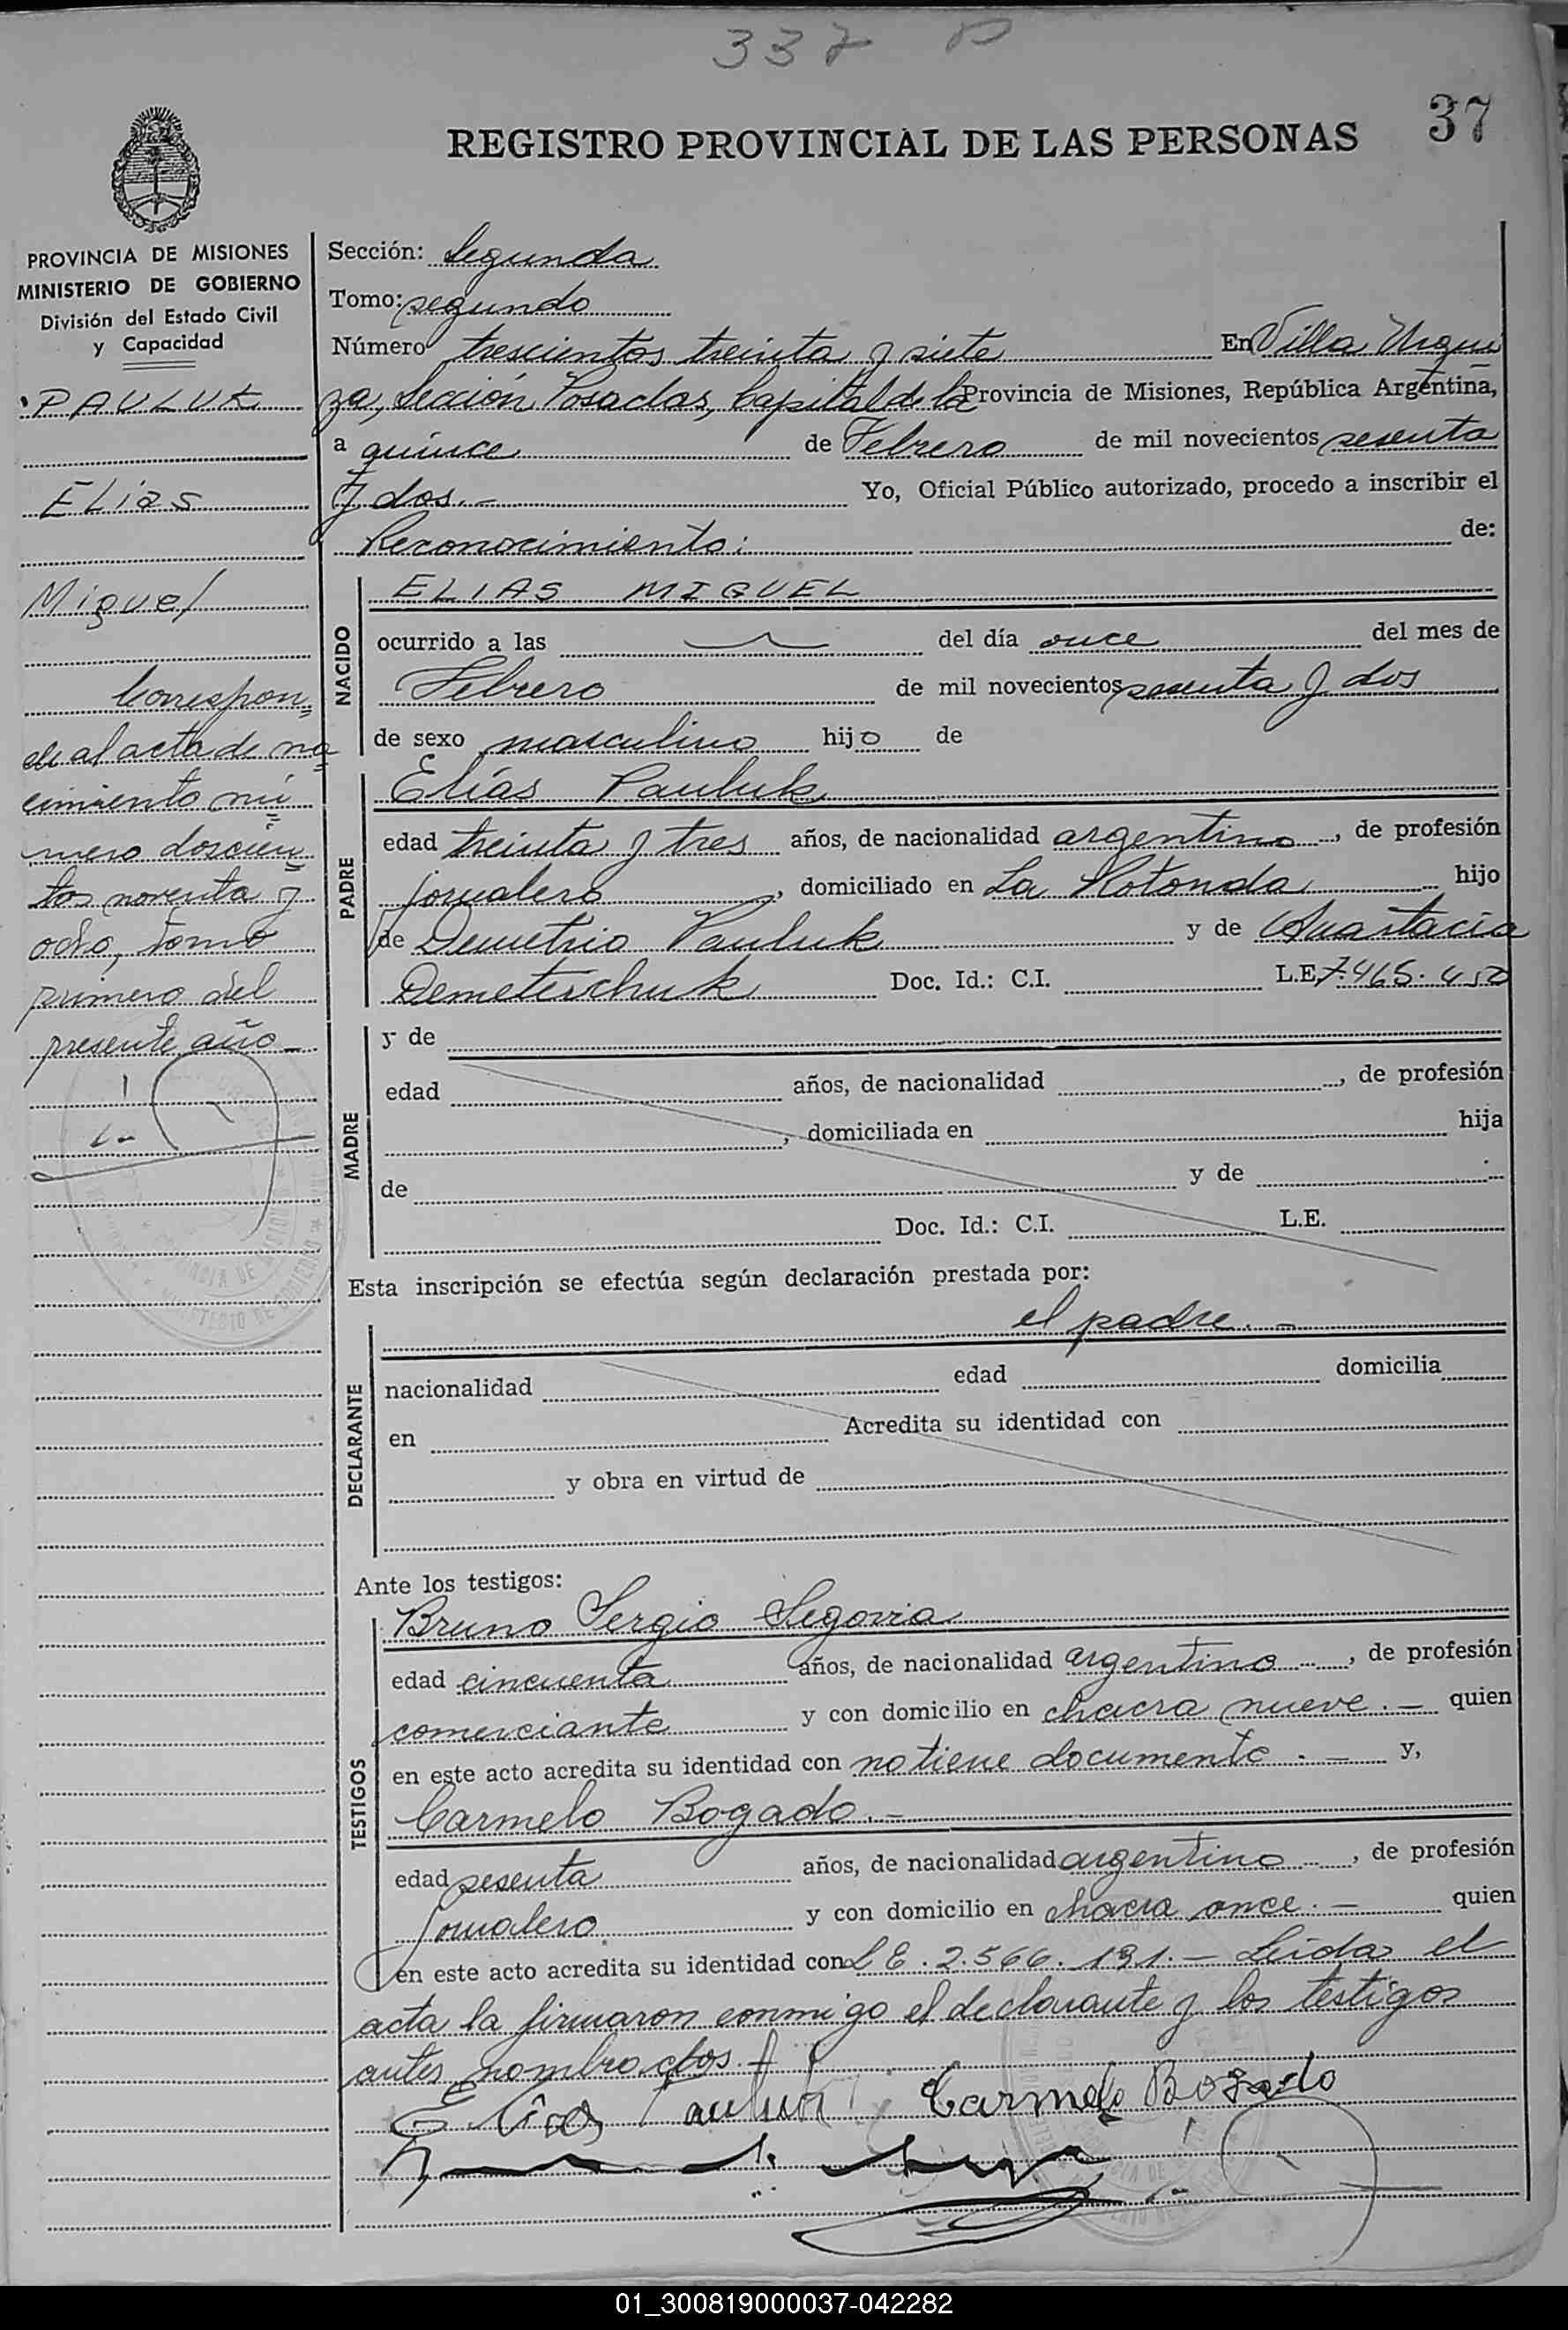 337 P
37
REGISTRO PROVINCIAL DE LAS PERSONAS
PROVINCIA DE MISIONES
MINISTERIO DE GOBIERNO
División del Estado Civil
y Capacidad
PAULUK
Elias
Miguel
Correspon=
de al acta de na=
cimiento nú=
mero doscien=
tos noventa y
ocho, tomo
primero del
presente año_
Sección: Segunda
Tomo: segundo
Número trescientos treinta y siete En Villa Urqui
za, Sección Posadas, Capital de la Provincia de Misiones, República Argentina,
a quince de Febrero de mil novecientos sesenta
y dos.- Yo, Oficial Público autorizado, procedo a inscribir el
Reconocimiento: de:
NACIDO
ELIAS MIGUEL
ocurrido a las del día once del mes de
Febrero de mil novecientos sesenta y dos
de sexo masculino hijo de
PADRE
Elías Pauluk
edad treinta y tres años, de nacionalidad argentino, de profesión
jornalero, domiciliado en La Rotonda hijo
de Demetrio Pauluk y de Anastacia
Demeterchuk Doc. Id.: C.I. L.E. 7.465.450
MADRE
y de
edad años, de nacionalidad , de profesión
, domiciliada en hija
de y de
Doc. Id.: C.I. L.E.
Esta inscripción se efectúa según declaración prestada por:
el padre.-
DECLARANTE
nacionalidad edad domicilia
en Acredita su identidad con
y obra en virtud de
Ante los testigos:
TESTIGOS
Bruno Sergio Segovia
edad cincuenta años, de nacionalidad argentino, de profesión
comerciante y con domicilio en chacra nueve.- quien
en este acto acredita su identidad con no tiene documento.- y,
Carmelo Bogado.-
edad sesenta años, de nacionalidad argentino, de profesión
jornalero. y con domicilio en chacra once.- quien
en este acto acredita su identidad con L E. 2.566.191.- Leida el
acta la firmaron conmigo el declarante y los testigos
antes nombrados.-
Elias Pauluk Carmelo Bogado
01_300819000037-042282